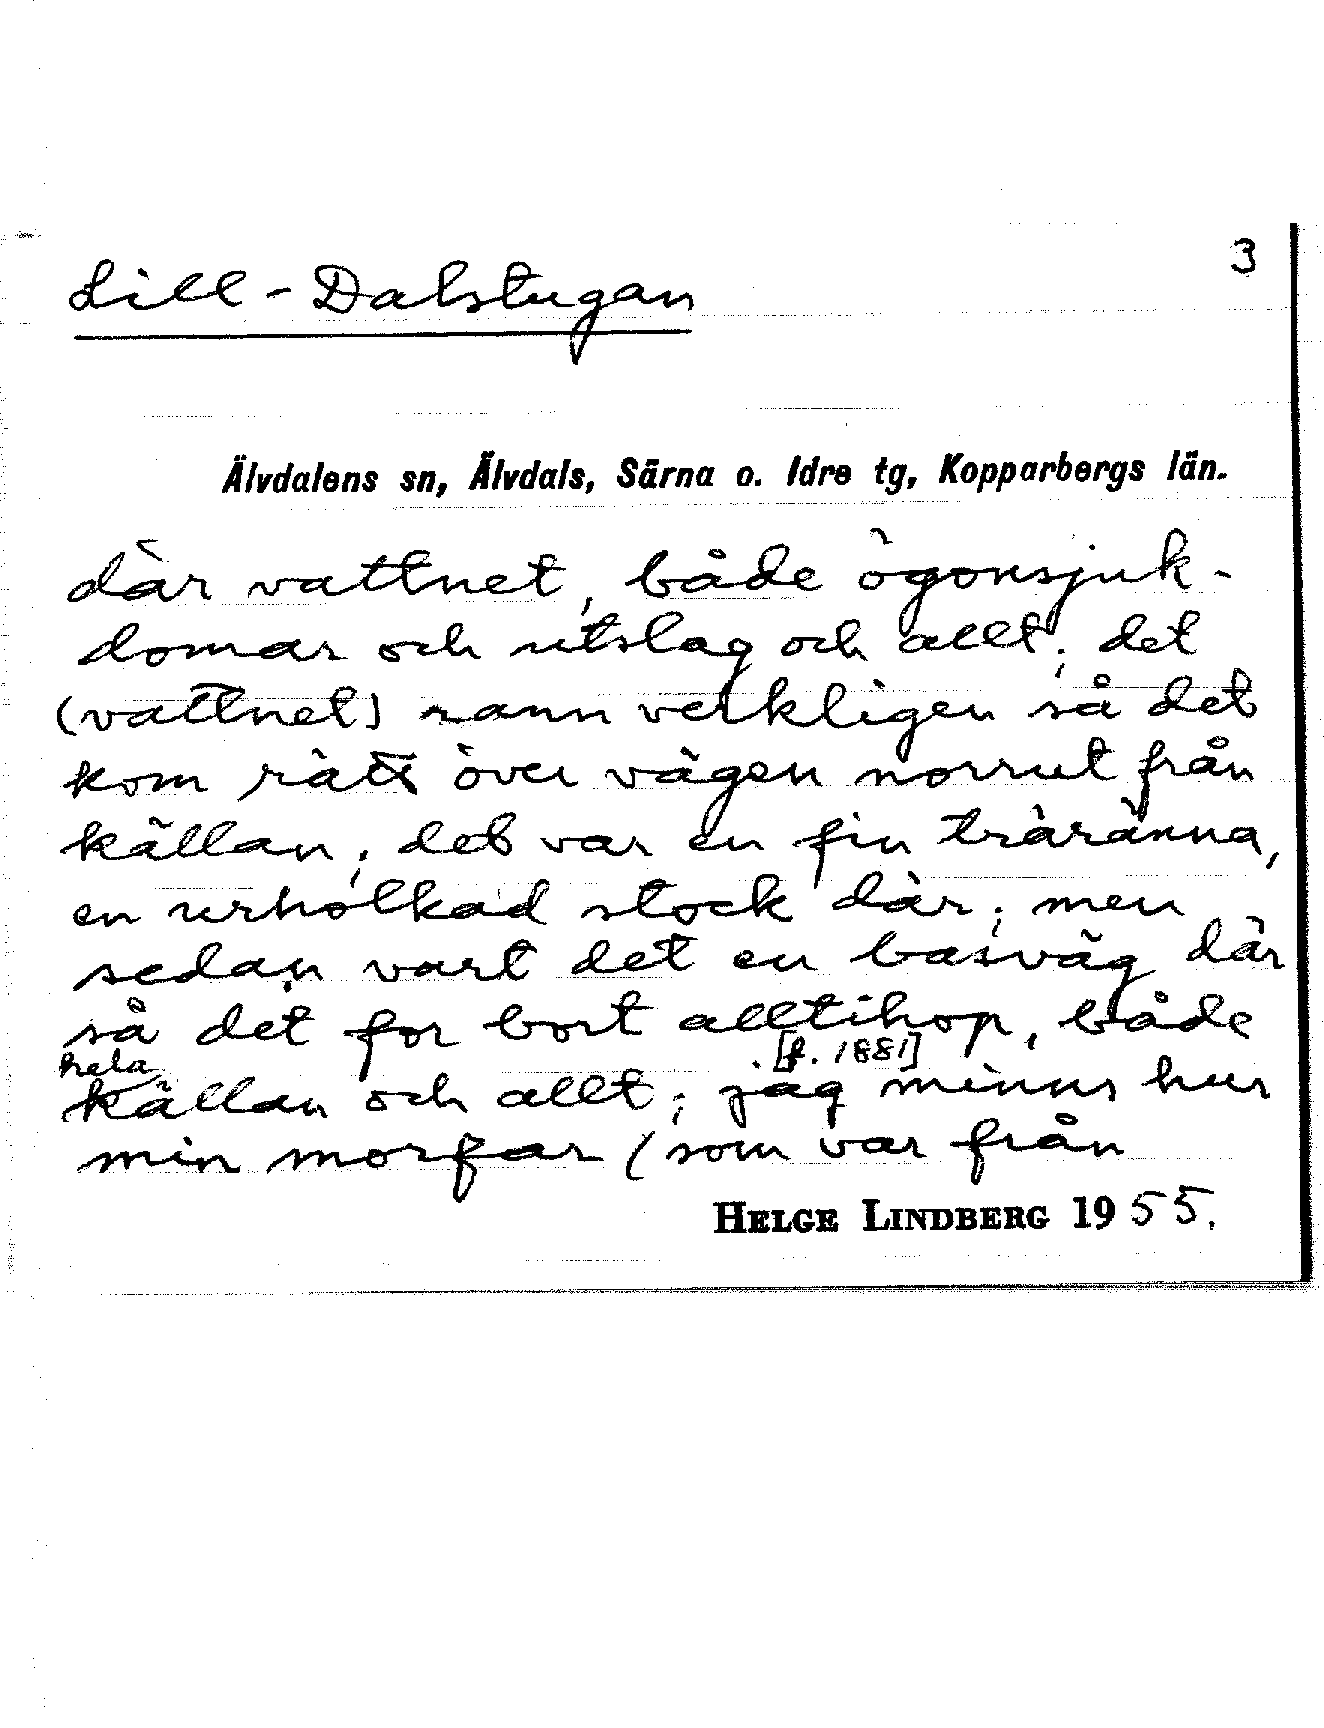 3
Lill-Dalstugan
Älvdalens sn, Älvdals, Särna o. Idre tg, Kopparbergs län.
där vattnet, både ögonsjuk-
domar och utslag och allt; det
(vattnet) rann verkligen så det
kom rätt över vägen norrut från
källan; det var en fin träränna,
en urholkad stock där; men
sedan vart det en basväg där
så det for bort alltihop, både
hela [f. 1881]
källan och allt; jag minns hur
min morfar (som var från
HELGE LINDBERG 1955.